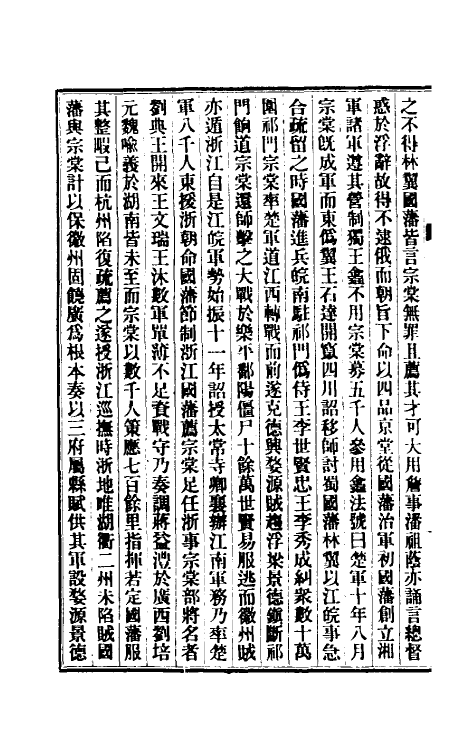 之不得林翼國藩皆言宗棠無罪且薦其才可大用詹事潘祖蔭亦誦言總督
惑於浮辭故得不逮俄而朝旨下命以四品京堂從國藩治軍初國藩創立湘
軍諸軍遵其營制獨王鑫不用宗棠募五千人參用鑫法號曰楚軍十年八月
宗棠旣成軍而東僞翼王石達開竄四川詔移師討蜀國藩林翼以江皖事急
合疏留之時國藩進兵皖南駐祁門僞侍王李世賢忠王李秀成糾衆數十萬
圍祁門宗棠率楚軍道江西轉戰而前遂克德興婺源賊趨浮梁景德鎭斷祁
門餉道宗棠還師擊之大戰於樂平鄱陽僵尸十餘萬世賢易服逃而徽州賊
亦遁浙江自是江皖軍勢始振十一年詔授太常寺卿襄辦江南軍務乃率楚
軍八千人東援浙朝命國藩節制浙江國藩薦宗棠足任浙事宗棠部將名者
劉典王開來王文瑞王沐數軍單薄不足資戰守乃奏調蔣益澧於廣西劉培
元魏喩義於湖南皆未至而宗棠以數千人策應七百餘里指揮若定國藩服
其整暇已而杭州陷復疏薦之遂授浙江巡撫時浙地唯湖衢二州未陷賊國
藩與宗棠計以保徽州固饒廣爲根本奏以三府屬縣賦供其軍設婺源景德